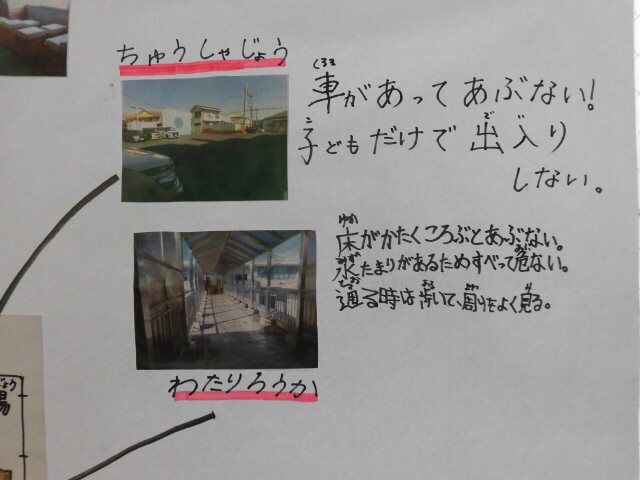 ちゅうしゃじょう
くるま
車があってあぶない!
こ
子どもだけで出入り
で
しない。
ゆか
床がかたくころぶとあぶない。
みず
水たまりがあるためすべって危ない。
あぶ
とお
通る時は歩いて、周りをよく見る。
ある
まわ
み
わたりろうか
じょう
場